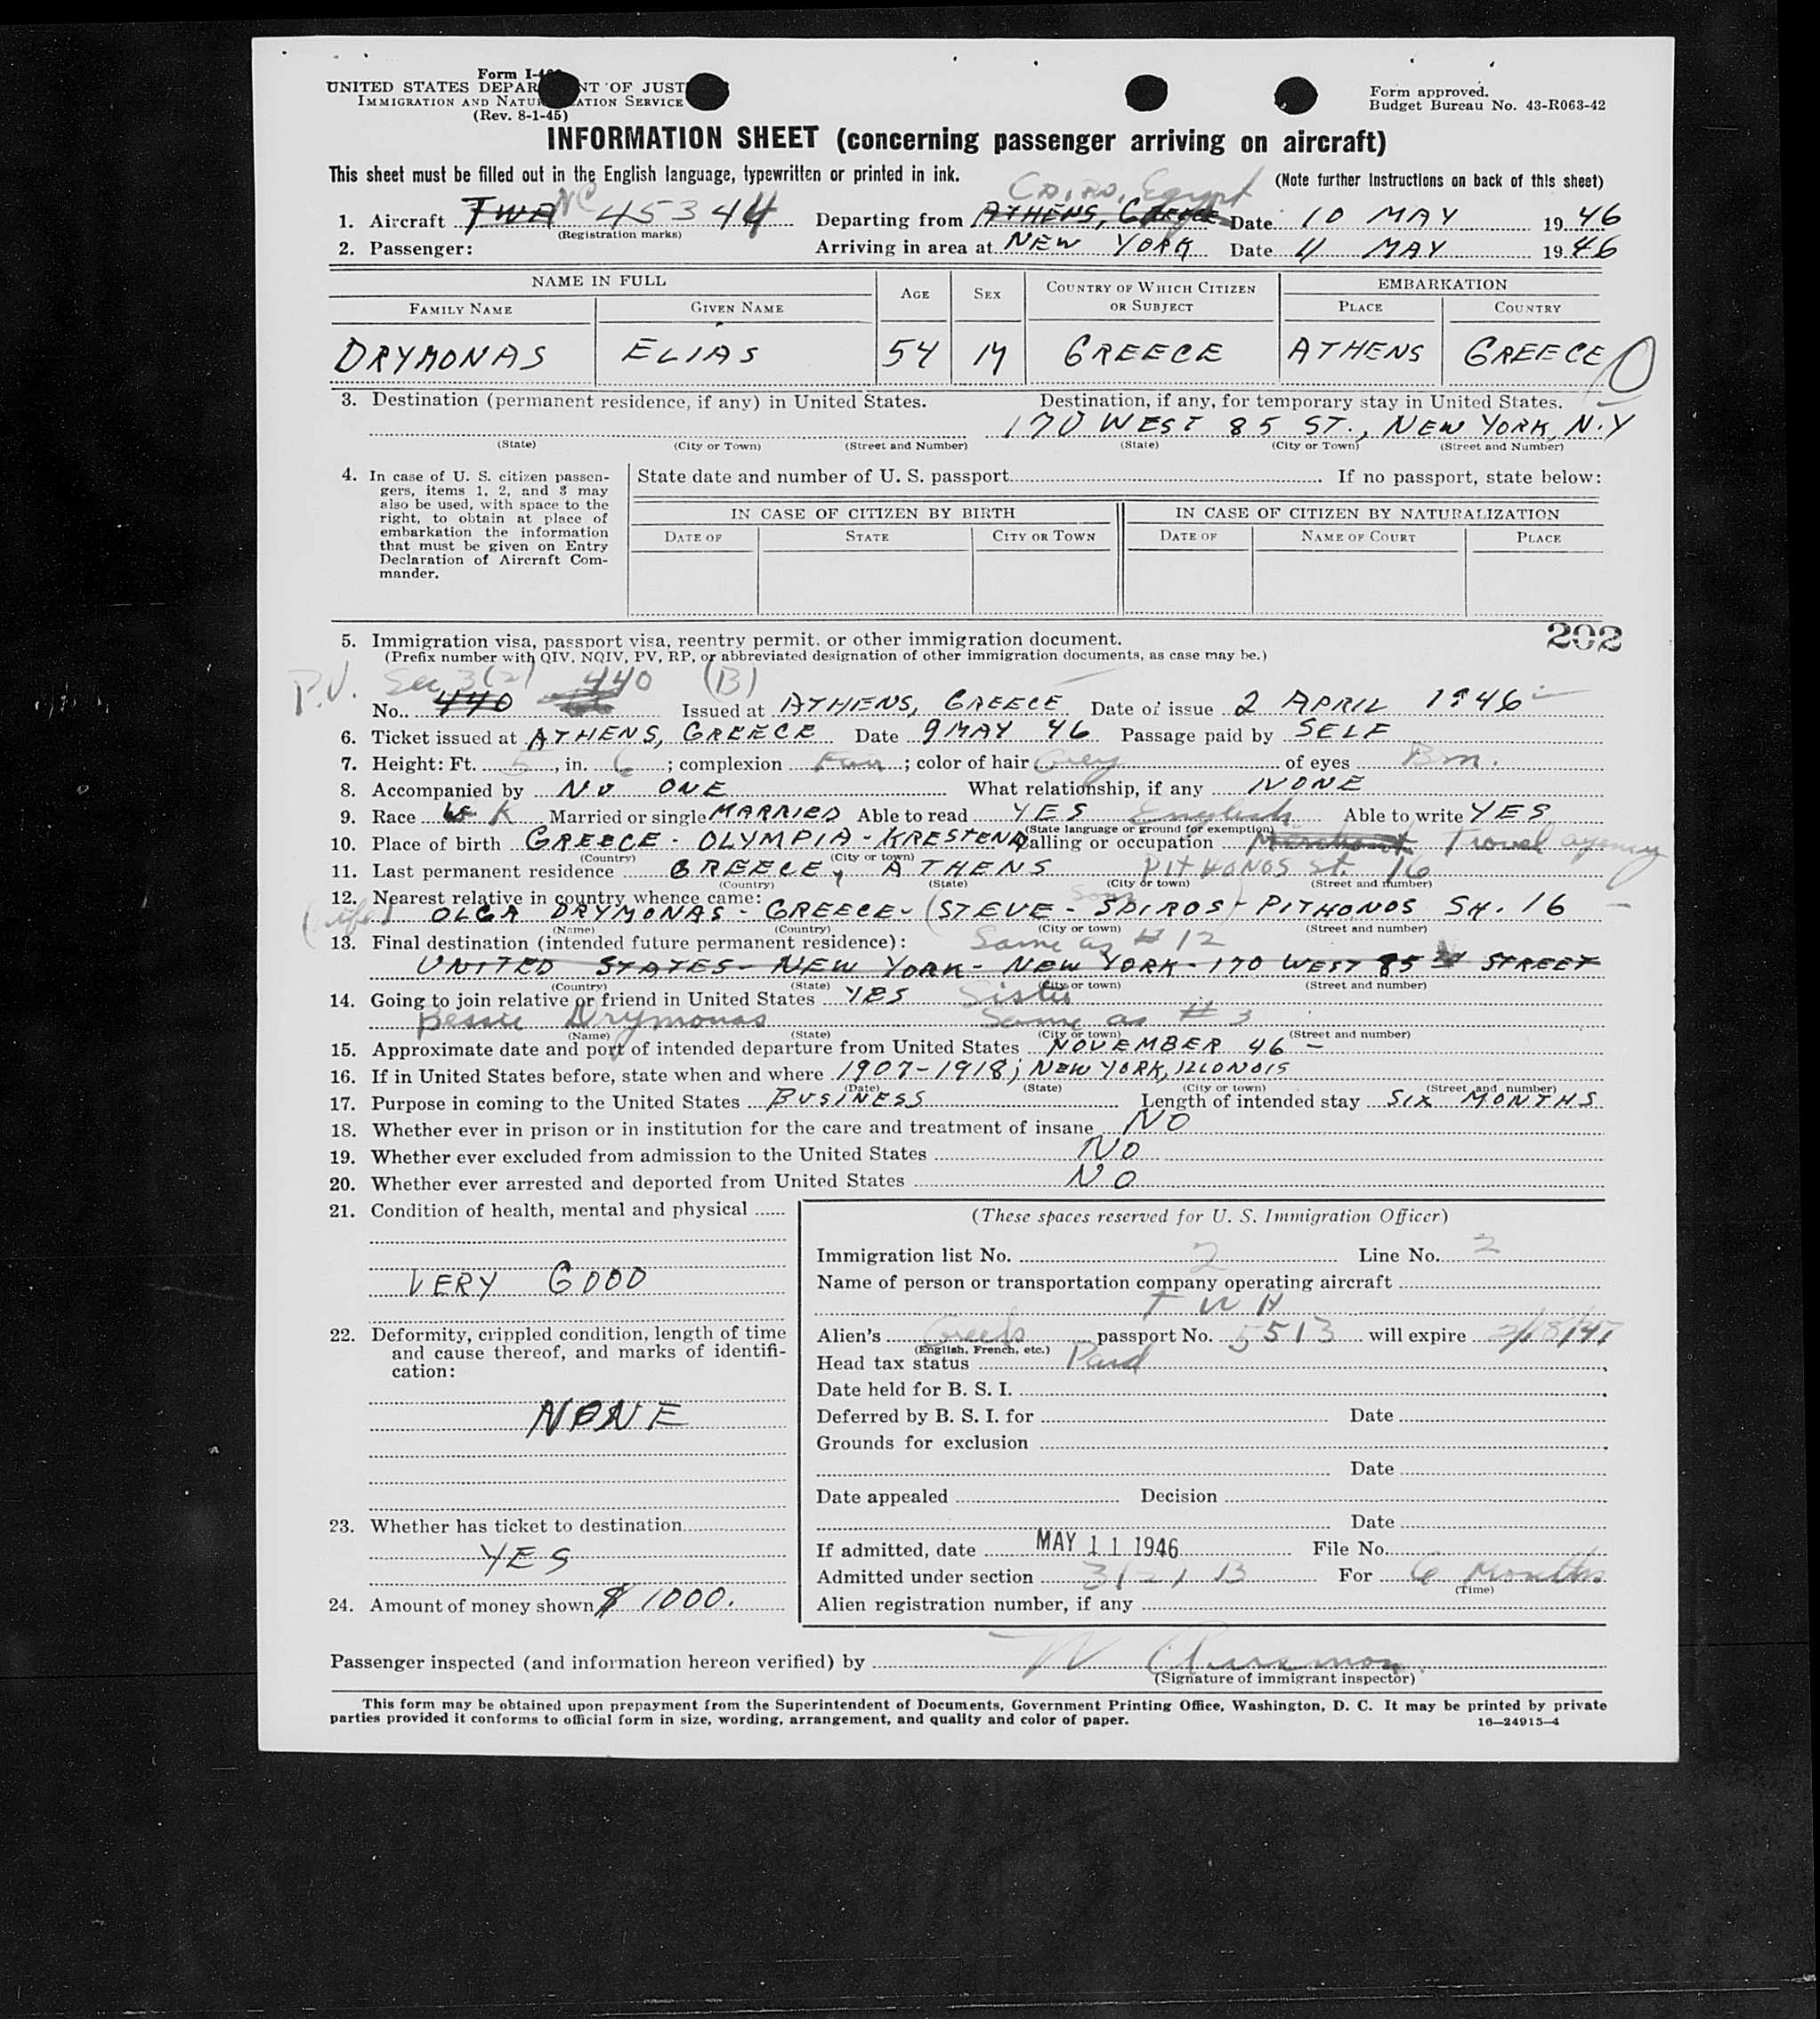 Form I-4
UNITED STATES DEPAR NT OF JUST
IMMIGRATION AND NATU ATION SERVICE
(Rev. 8-1-45)
Form approved.
Budget Bureau No. 43-R063-42
INFORMATION SHEET (concerning passenger arriving on aircraft)
This sheet must be filled out in the English language, typewritten or printed in ink.
(Note further instructions on back of this sheet)
Cairo, Egypt
1. Aircraft TWA NC 45344 Departing from ATHENS, GREECE Date 10 MAY 1946
(Registration marks)
2. Passenger: Arriving in area at NEW YORK Date 11 MAY 1946
NAME IN FULL
FAMILY NAME GIVEN NAME AGE SEX COUNTRY OF WHICH CITIZEN OR SUBJECT EMBARKATION PLACE COUNTRY
DRYMONAS ELIAS 54 M GREECE ATHENS GREECE
3. Destination (permanent residence, if any) in United States. Destination, if any, for temporary stay in United States.
170 WEST 85 ST., NEW YORK, N.Y
(State) (City or Town) (Street and Number) (State) (City or Town) (Street and Number)
4. In case of U. S. citizen passen-
gers, items 1, 2, and 3 may
also be used, with space to the
right, to obtain at place of
embarkation the information
that must be given on Entry
Declaration of Aircraft Com-
mander.
State date and number of U. S. passport If no passport, state below:
IN CASE OF CITIZEN BY BIRTH IN CASE OF CITIZEN BY NATURALIZATION
DATE OF STATE CITY OR TOWN DATE OF NAME OF COURT PLACE
202
5. Immigration visa, passport visa, reentry permit, or other immigration document.
(Prefix number with QIV, NQIV, PV, RP, or abbreviated designation of other immigration documents, as case may be.)
P.V. Sec 3(2) 440 (B)
No. 440 Issued at ATHENS, GREECE Date of issue 2 APRIL 1946
6. Ticket issued at ATHENS, GREECE Date 9 MAY 46 Passage paid by SELF
7. Height: Ft. 5, in. 6; complexion Fair; color of hair Grey of eyes Brn.
8. Accompanied by NO ONE What relationship, if any NONE
9. Race K Married or single MARRIED Able to read YES English Able to write YES
(State language or ground for exemption)
10. Place of birth GREECE - OLYMPIA - KRESTENA Calling or occupation Merchant Travel agency
(Country) (City or town)
11. Last permanent residence GREECE, ATHENS PITHONOS St. 16
(Country) (State) (City or town) (Street and number)
12. Nearest relative in country whence came: sons
(wife) OLGA DRYMONAS - GREECE - (STEVE - SPIROS) - PITHONOS St. 16
(Name) (Country) (City or town) (Street and number)
13. Final destination (intended future permanent residence): Same as # 12
UNITED STATES - NEW YORK - NEW YORK - 170 WEST 85 STREET
(Country) (State) (City or town) (Street and number)
14. Going to join relative or friend in United States YES Sister
Bessie Drymonas Same as # 3
(Name) (State) (City or town) (Street and number)
15. Approximate date and port of intended departure from United States NOVEMBER 46 -
16. If in United States before, state when and where 1907-1918; NEW YORK, ILLONOIS
(Date) (State) (City or town) (Street and number)
17. Purpose in coming to the United States BUSINESS Length of intended stay SIX MONTHS
18. Whether ever in prison or in institution for the care and treatment of insane NO
19. Whether ever excluded from admission to the United States NO
20. Whether ever arrested and deported from United States NO
21. Condition of health, mental and physical
VERY GOOD
22. Deformity, crippled condition, length of time
and cause thereof, and marks of identifi-
cation:
NONE
23. Whether has ticket to destination
YES
24. Amount of money shown $ 1000.
(These spaces reserved for U. S. Immigration Officer)
Immigration list No. 2 Line No. 2
Name of person or transportation company operating aircraft
TWA
Alien's Greek passport No. 5513 will expire 2/18/47
(English, French, etc.)
Head tax status Paid
Date held for B. S. I.
Deferred by B. S. I. for Date
Grounds for exclusion
Date
Date appealed Decision
Date
If admitted, date MAY 11 1946 File No.
Admitted under section 3(2) B For 6 Months
(Time)
Alien registration number, if any
Passenger inspected (and information hereon verified) by
(Signature of immigrant inspector)
This form may be obtained upon prepayment from the Superintendent of Documents, Government Printing Office, Washington, D. C. It may be printed by private
parties provided it conforms to official form in size, wording, arrangement, and quality and color of paper.
16—24915-4